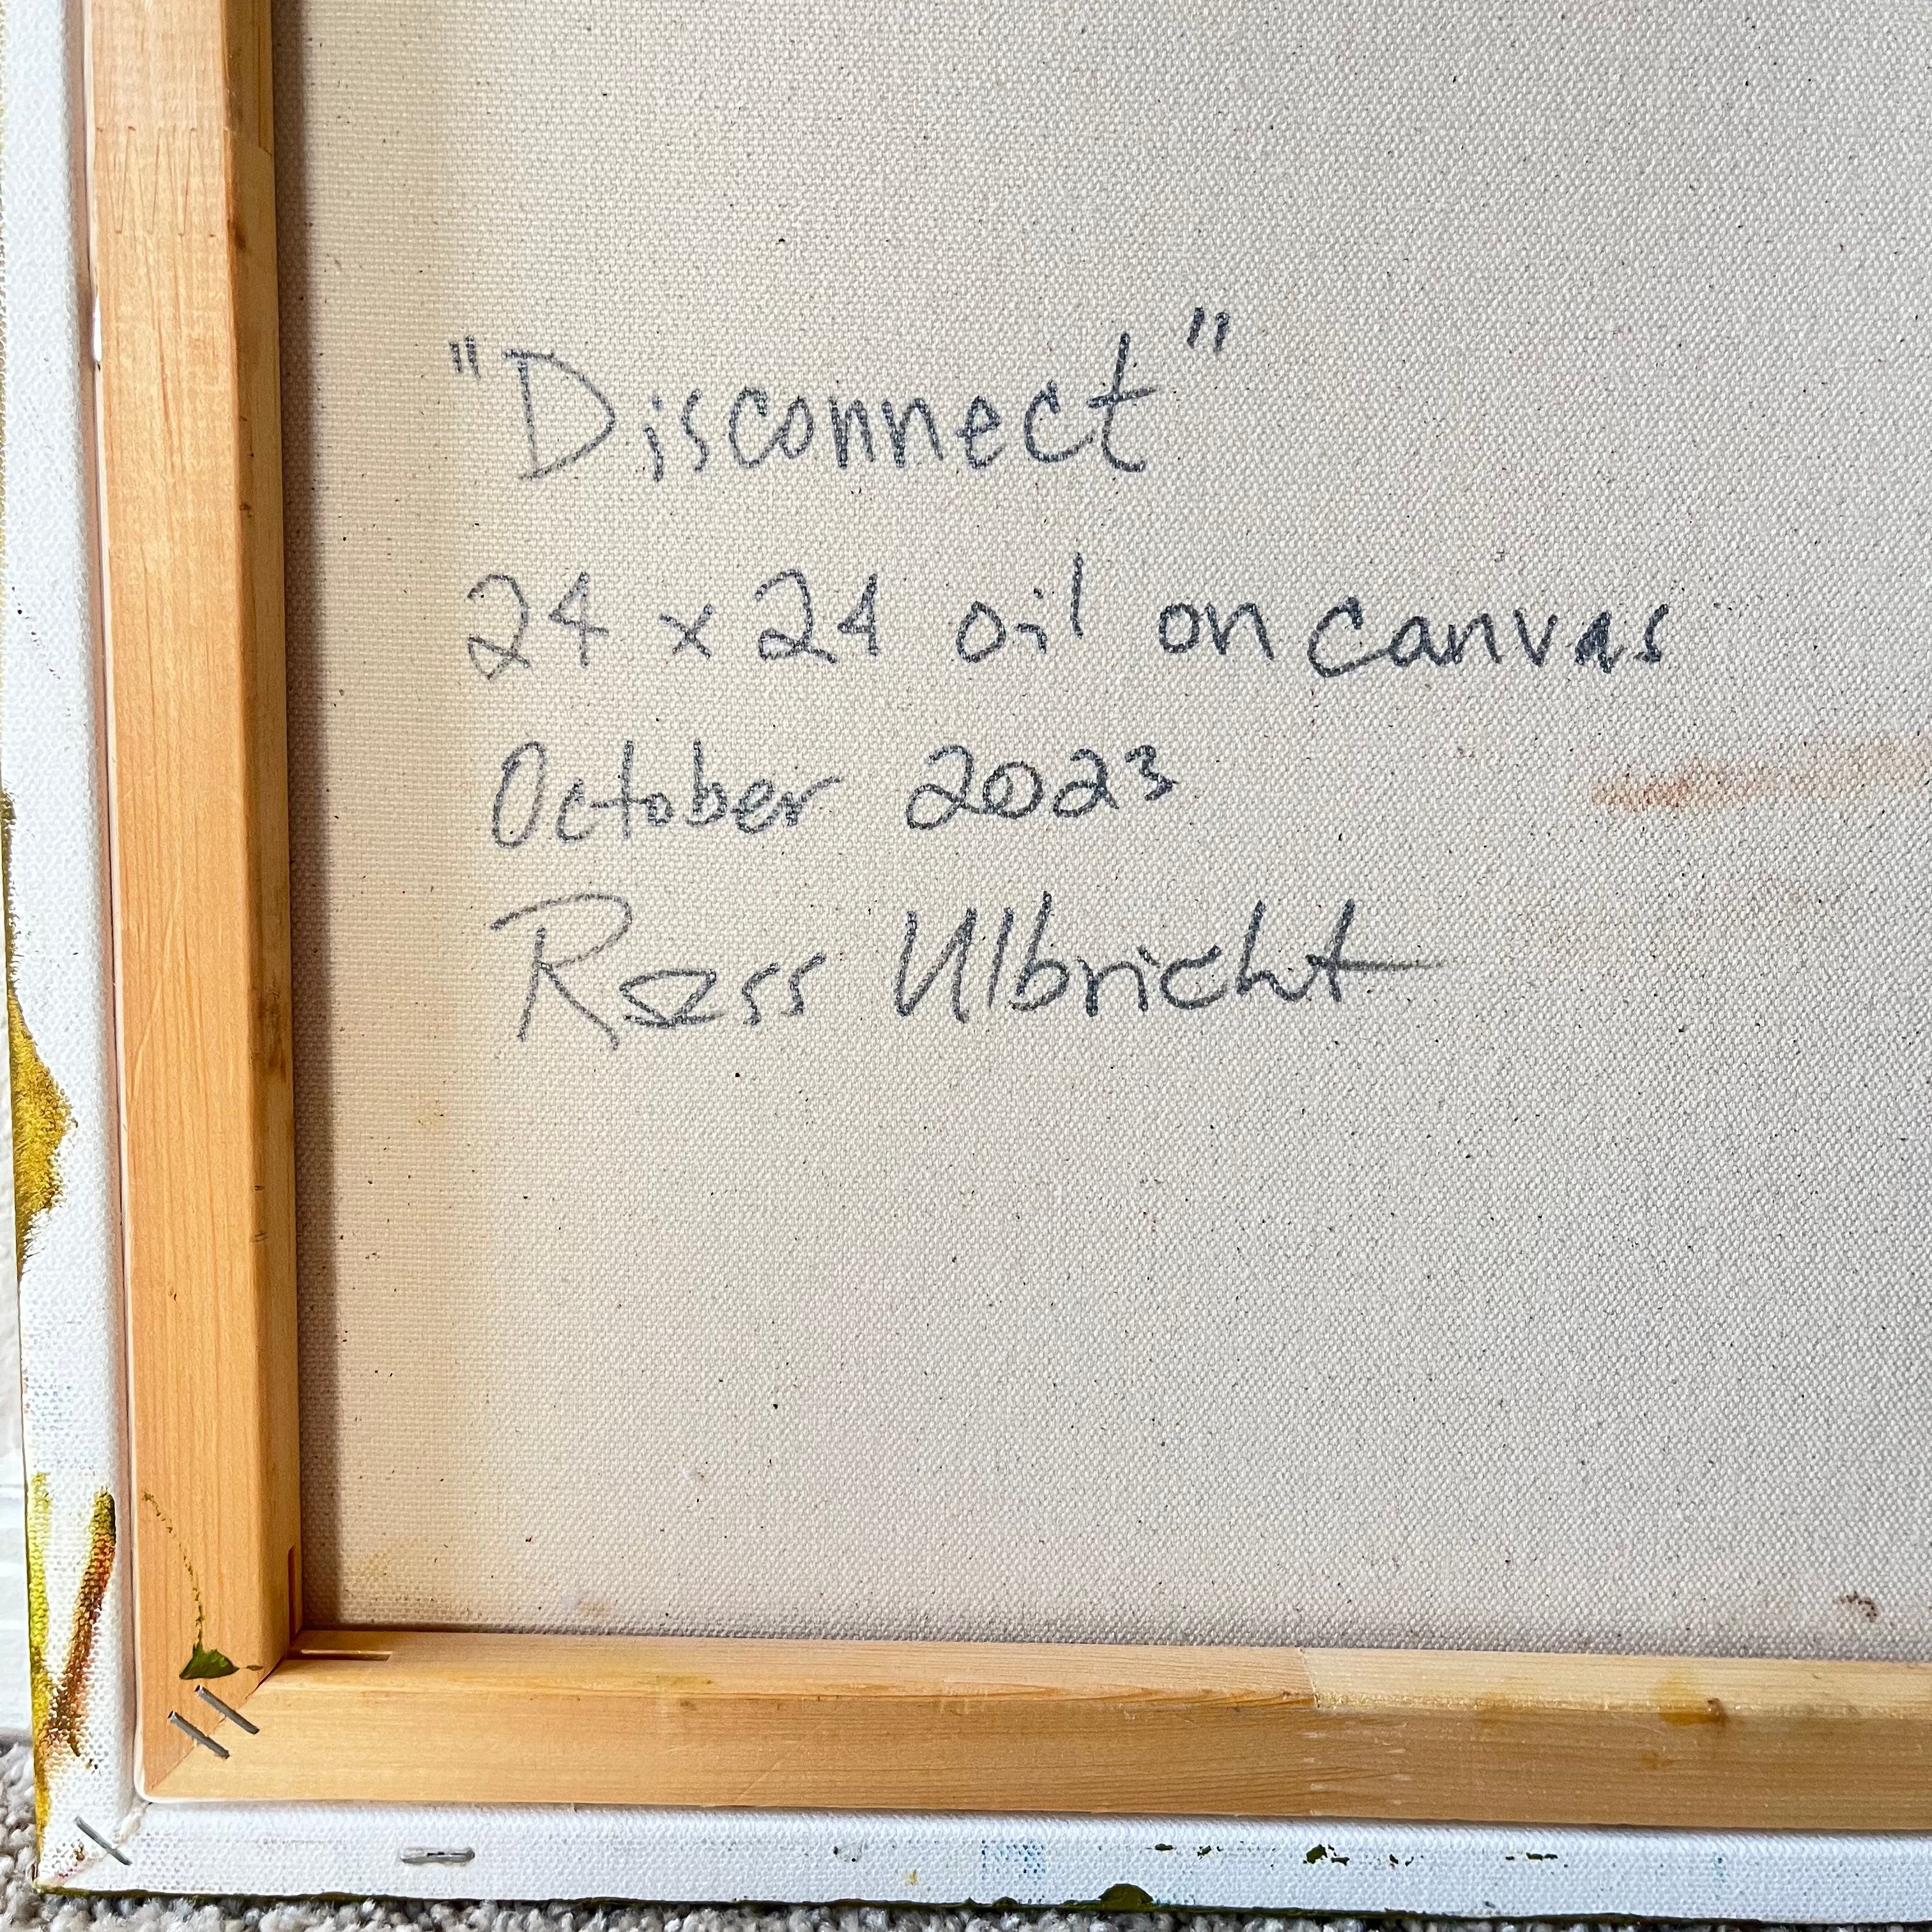 "Disconnect"
24 x 24 oil on canvas
October 2023
Ross Ulbricht